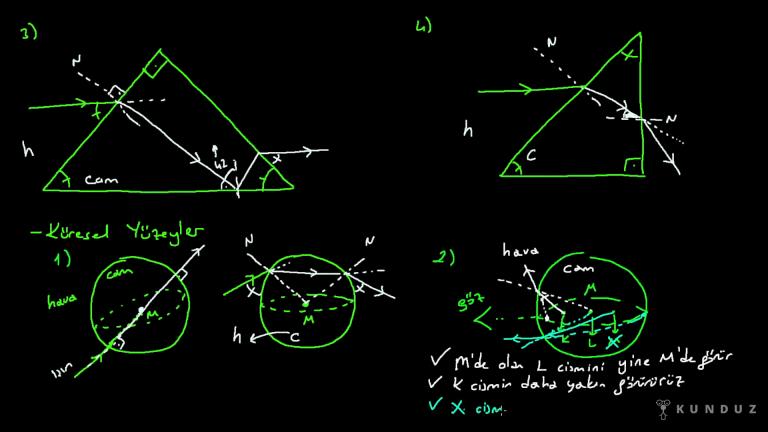 3)
4)
N
N
x
h
cam
42°
x
h
C
N
- Küresel Yüzeyler
1)
cam
hava
M
ışın
N
N
x
x
M
h
C
2)
hava
cam
göz
M
K
L
X
✓ M'de olan L cismini yine M'de görür
✓ K cismin daha yakın görürüz
✓ X cism.
KUNDUZ